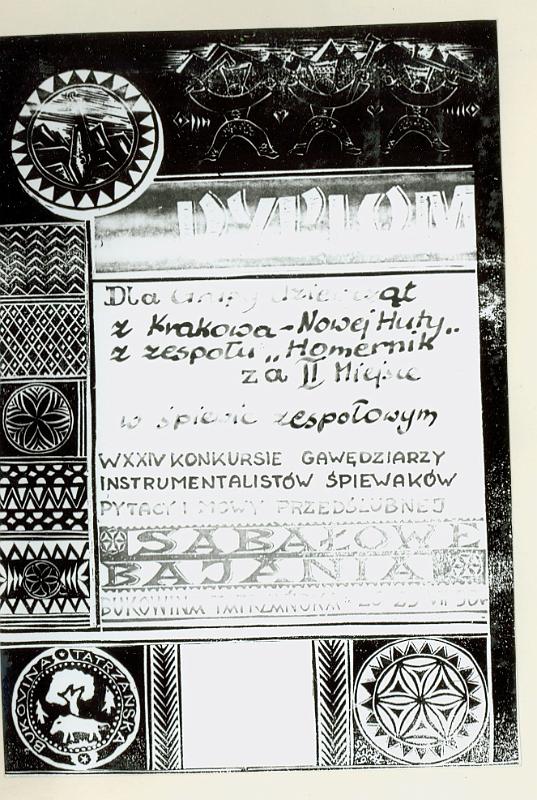 DYPLOM
Dla Grupy dziewcząt
z Krakowa-Nowej Huty„
z zespołu „Homernik
za II Miejsce
w śpiewie zespołowym
W XXIV KONKURSIE GAWĘDZIARZY
INSTRUMENTALISTÓW ŚPIEWAKÓW
PYTACY I MOWY PRZEDŚLUBNEJ
SABAŁOWE
BAJANIA
BUKOWINA TATRZAŃSKA
BUKOWINA TATRZAŃSKA